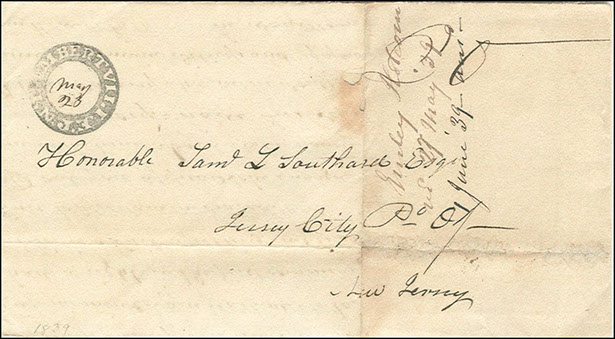 LAMBERTVILLE N.J.
May
23
Honorable Saml L Southard Esqr
Jersey City Po O
New Jersey
May 39
June 39
1839